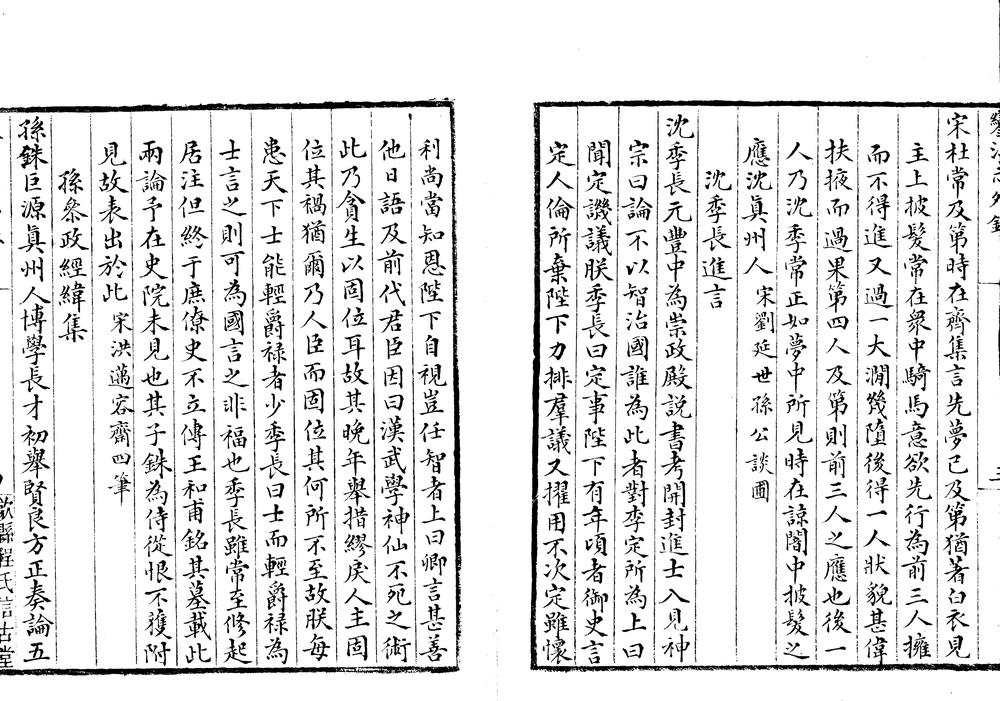 宋杜常及第時在齊集言先夢已及第猶著白衣見
主上披髮常在衆中騎馬意欲先行為前三人擁
而不得進又過一大澗幾墮後得一人狀貌甚偉
扶掖而過果第四人及第則前三人之應也後一
人乃沈季常正如夢中所見時在諒闇中披髮之
應沈真州人 宋劉延世孫公談圃
沈季長進言
沈季長元豐中為崇政殿説書考開封進士入見神
宗曰論不以智治國誰為此者對李定所為上曰
聞定譏議朕季長曰定事陛下有年頃者御史言
定人倫所棄陛下力排羣議又擢用不次定雖懷
利尚當知恩陛下自視豈任智者上曰卿言甚善
他日語及前代君臣因曰漢武學神仙不死之術
此乃貪生以固位耳故其晚年舉措繆戾人主固
位其禍猶爾乃人臣而固位其何所不至故朕每
患天下士能輕爵祿者少季長曰士而輕爵祿為
士言之則可為國言之非福也季長雖常至修起
居注但終于庶僚史不立傳王和甫銘其墓載此
兩論予在史院未見也其子銖為侍從恨不獲附
見故表出於此 宋洪邁容齋四筆
孫叅政經緯集
孫銖巨源真州人博學長才初舉賢良方正奏論五
歙縣程氏信古堂